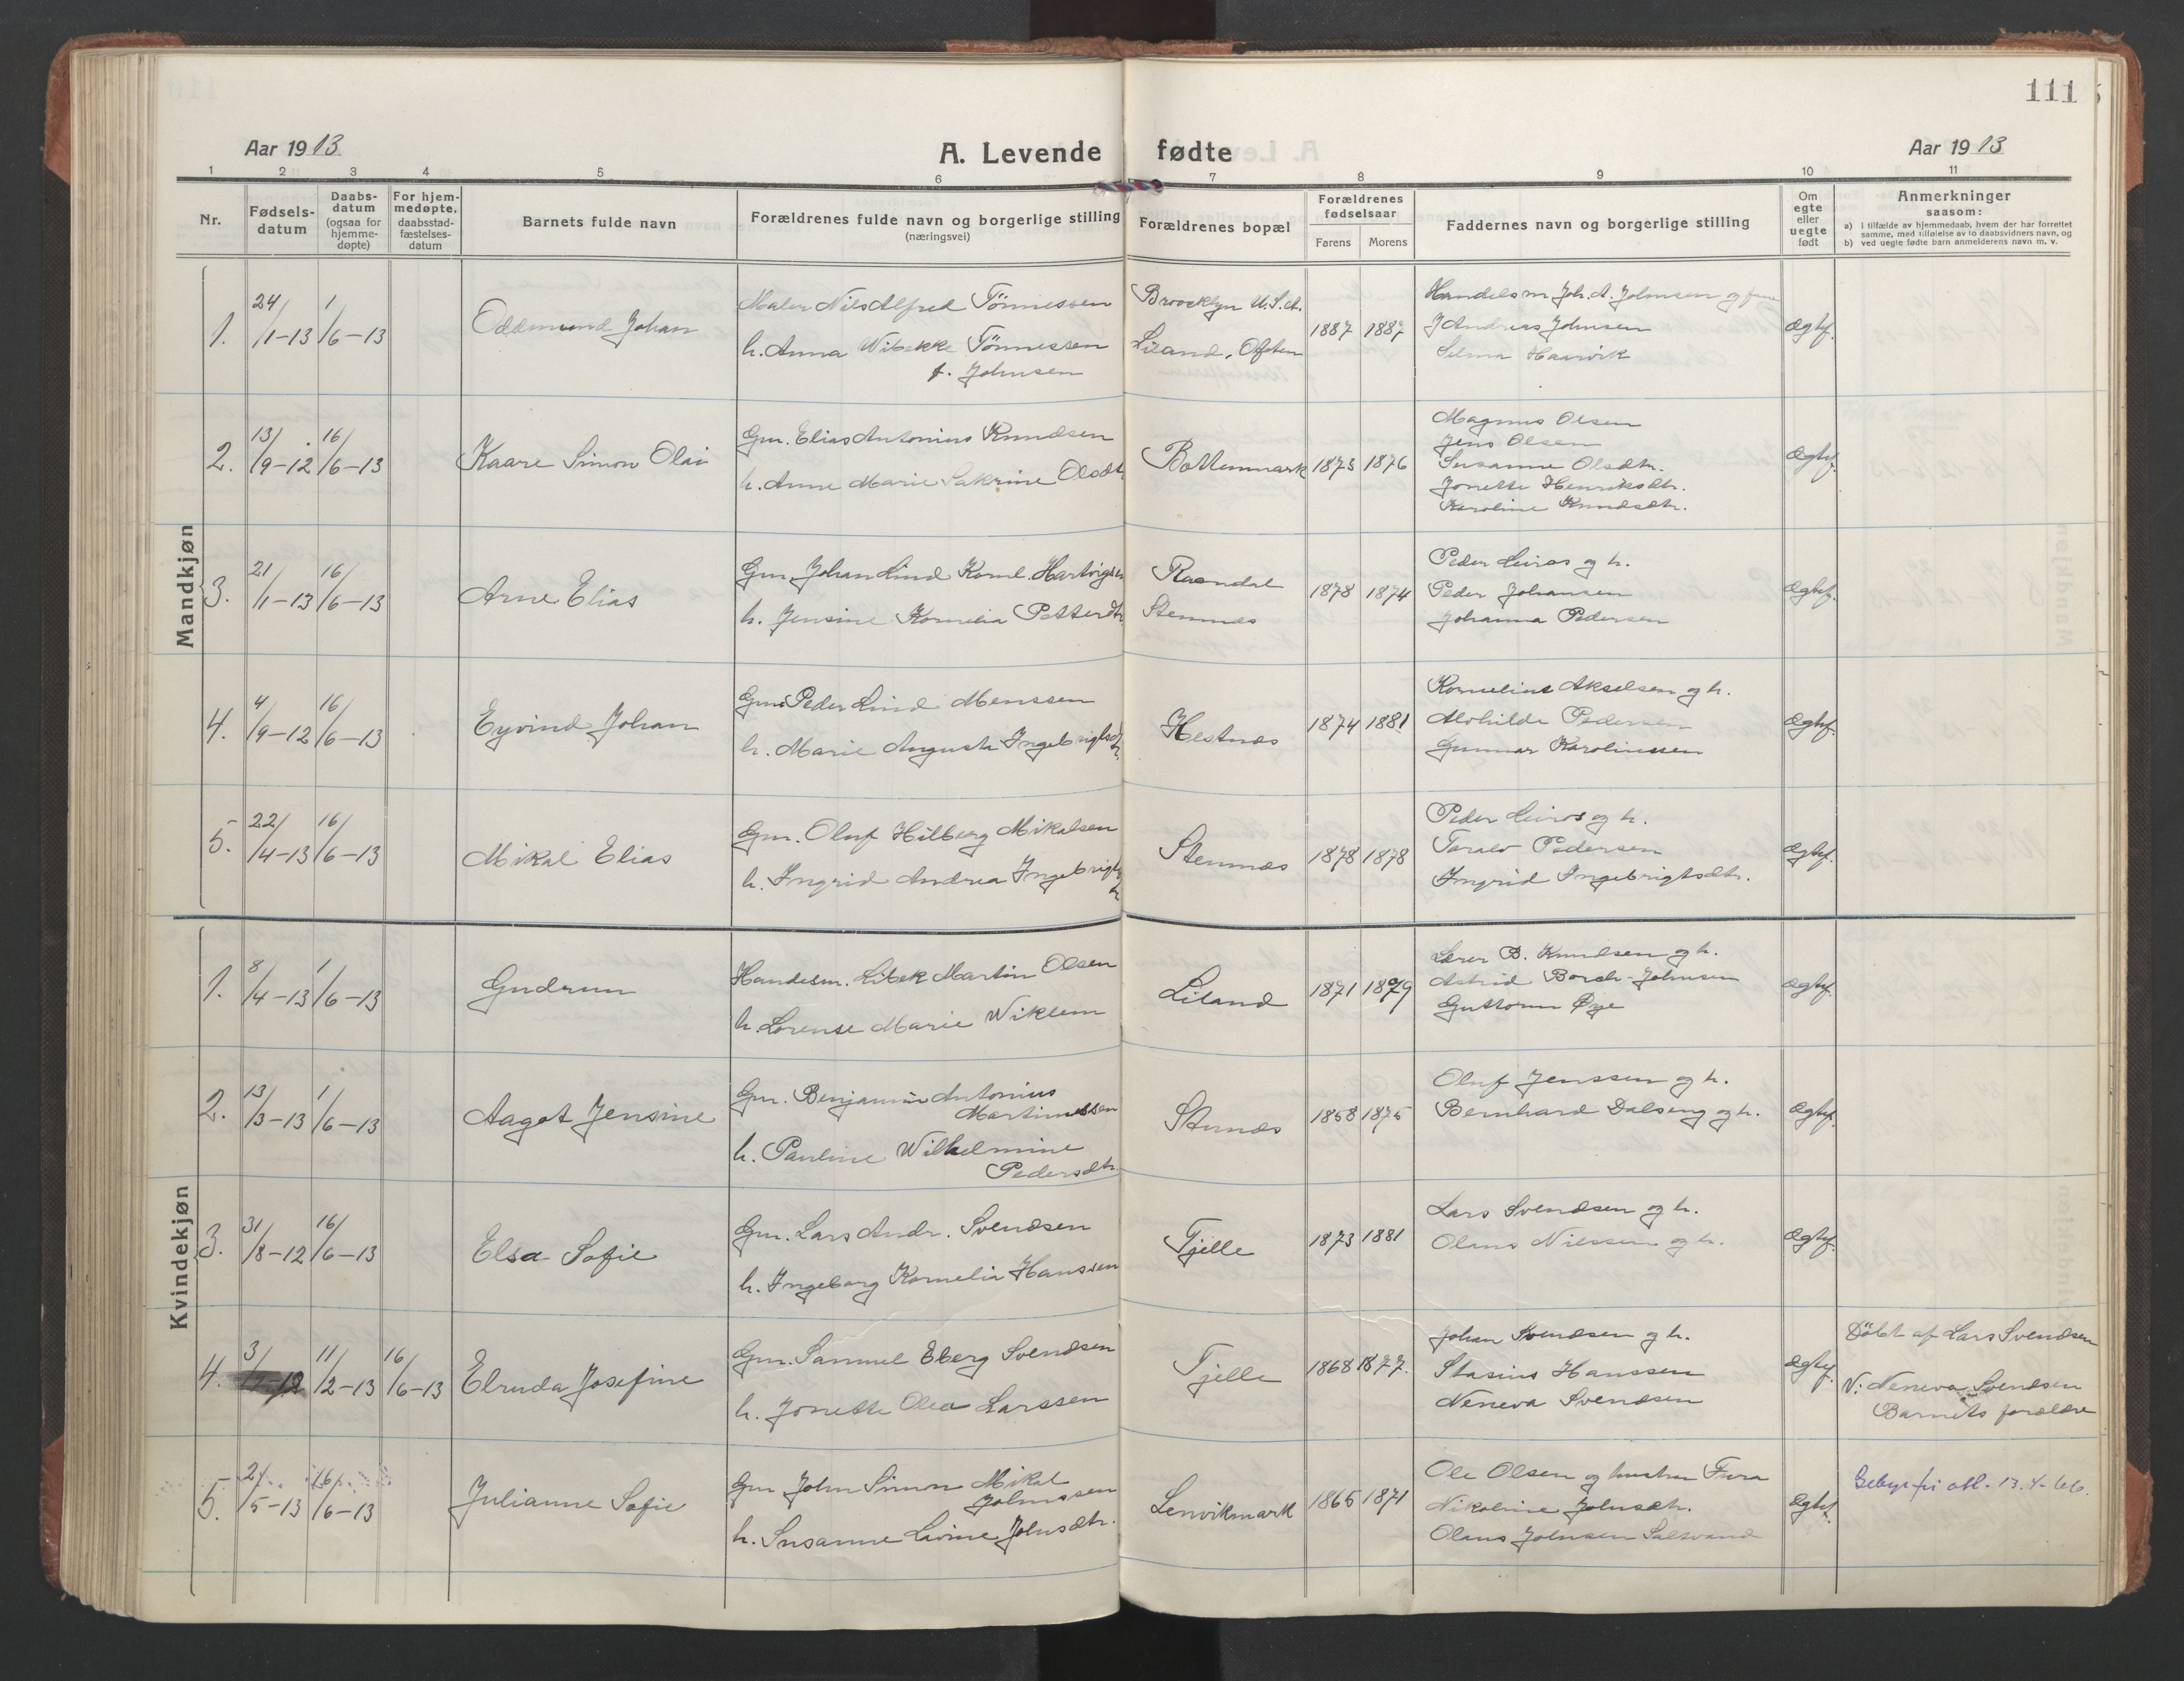 111
Aar 1913
A. Levende fødte
Aar 1913
1 2 3 4 5 6 7 8 9 10 11
Nr.
Fødsels-
datum
Daabs-
datum
(ogsaa for
hjemme-
døpte)
For hjem-
medøpte,
daabsstad-
fæstelses-
datum
Barnets fulde navn
Forældrenes fulde navn og borgerlige stilling
(næringsvei)
Forældrenes bopæl
Forældrenes
fødselsaar
Farens Morens
Faddernes navn og borgerlige stilling
Om
egte
eller
uegte
født
Anmerkninger
saasom:
a) I tilfælde av hjemmedaab, hvem der har forrettet
samme, med tilføielse av to daabsvidners navn, og
b) ved uegte fødte barn anmelderens navn m. v.
Mandkjøn
1. 24/1-13 1/6-13
Oddmund Johan
Maler Nils Alfred Tönnessen
h. Anna Wibekke Tönnessen
f. Johnsen
Broocklyn U.S.A.
Liland, Ofoten
1887 1887
Handelsm Joh. A. Johnsen og frue
J Andreas Johnsen
Selma Haarvik
Ægtef.
2. 13/9-12 16/6-13
Kaare Simon Olai
Gm. Elias Antonius Knudsen
h. Anne Marie Sakrine Olsdtr
Bottenmark
1873 1876
Magnus Olsen
Jens Olsen
Susanne Olsdtr.
Jonette Henriksdtr.
Karoline Knudsdtr.
Ægtef.
3. 21/1-13 16/6-13
Arne Elias
Gm. Johan Lind Kornl. Hartvigsen
h. Jensine Kornelia Pettersdtr
Raandal
Stennæs
1878 1874
Peder Leiros og h.
Peder Johansen
Johanna Pedersen
Ægtef.
4. 4/9-12 16/6-13
Eyvind Johan
Gm. Peder Lind Monssen
h. Marie Augusta Ingebrigtsdtr
Hestnæs
1874 1881
Kornelius Akselsen og h.
Alvhilda Pedersen
Gunnar Karolinssen
Ægtef.
5. 22/4-13 16/6-13
Mikal Elias
Gm. Oluf Hilberg Mikalsen
h. Ingrid Andrea Ingebrigtsdtr
Stennæs
1878 1878
Peder Leiros og h.
Toralv Pedersen
Ingrid Ingebrigtsdtr.
Ægtef.
Kvindekjøn
1. 8/4-13 1/6-13
Gudrun
Handelsm. Libek Martin Olsen
h. Lorense Marie Wiklem
Liland
1871 1879
Lærer B. Knudsen og h.
Astrid Borch-Johnsen
Guttorm Øye
Ægtef.
2. 13/3-13 1/6-13
Aagot Jensine
Gm. Benjamin Antonius
Martinussen
h. Pauline Wilhelmine
Pedersdtr.
Stunæs
1858 1875
Oluf Jenssen og h.
Bernhard Dalseng og h.
Ægtef.
3. 31/8-12 16/6-13
Elsa Sofie
Gm. Lars Andr. Svendsen
h. Ingeborg Kornelia Hanssen
Tjelle
1873 1881
Lars Svendsen og h.
Olans Nilssen og h.
Ægtef.
4. 3/ 11/2-13 16/6-13
Elruda Josefine
Gm. Samuel Eberg Svendsen
h. Jonette Olea Larssen
Tjelle
1868 1877.
Johan Svendsen og h.
Stasius Hanssen
Neneva Svendsen
Ægtef.
Döbt af Lars Svendsen
V: Neneva Svendsen
Barnets forældre
5. 2/5-13 16/6-13
Julianne Sofie
Gm John Simon Mikal
Johnssen
h. Susanne Lavine Johnsdtr.
Lenvikmark
1865 1871
Ole Olsen og hustru Fura
Nikoline Johnsdtr.
Olaus Johnsen Salvand
Ægtef.
Gebyrfri att. 13.4-66.